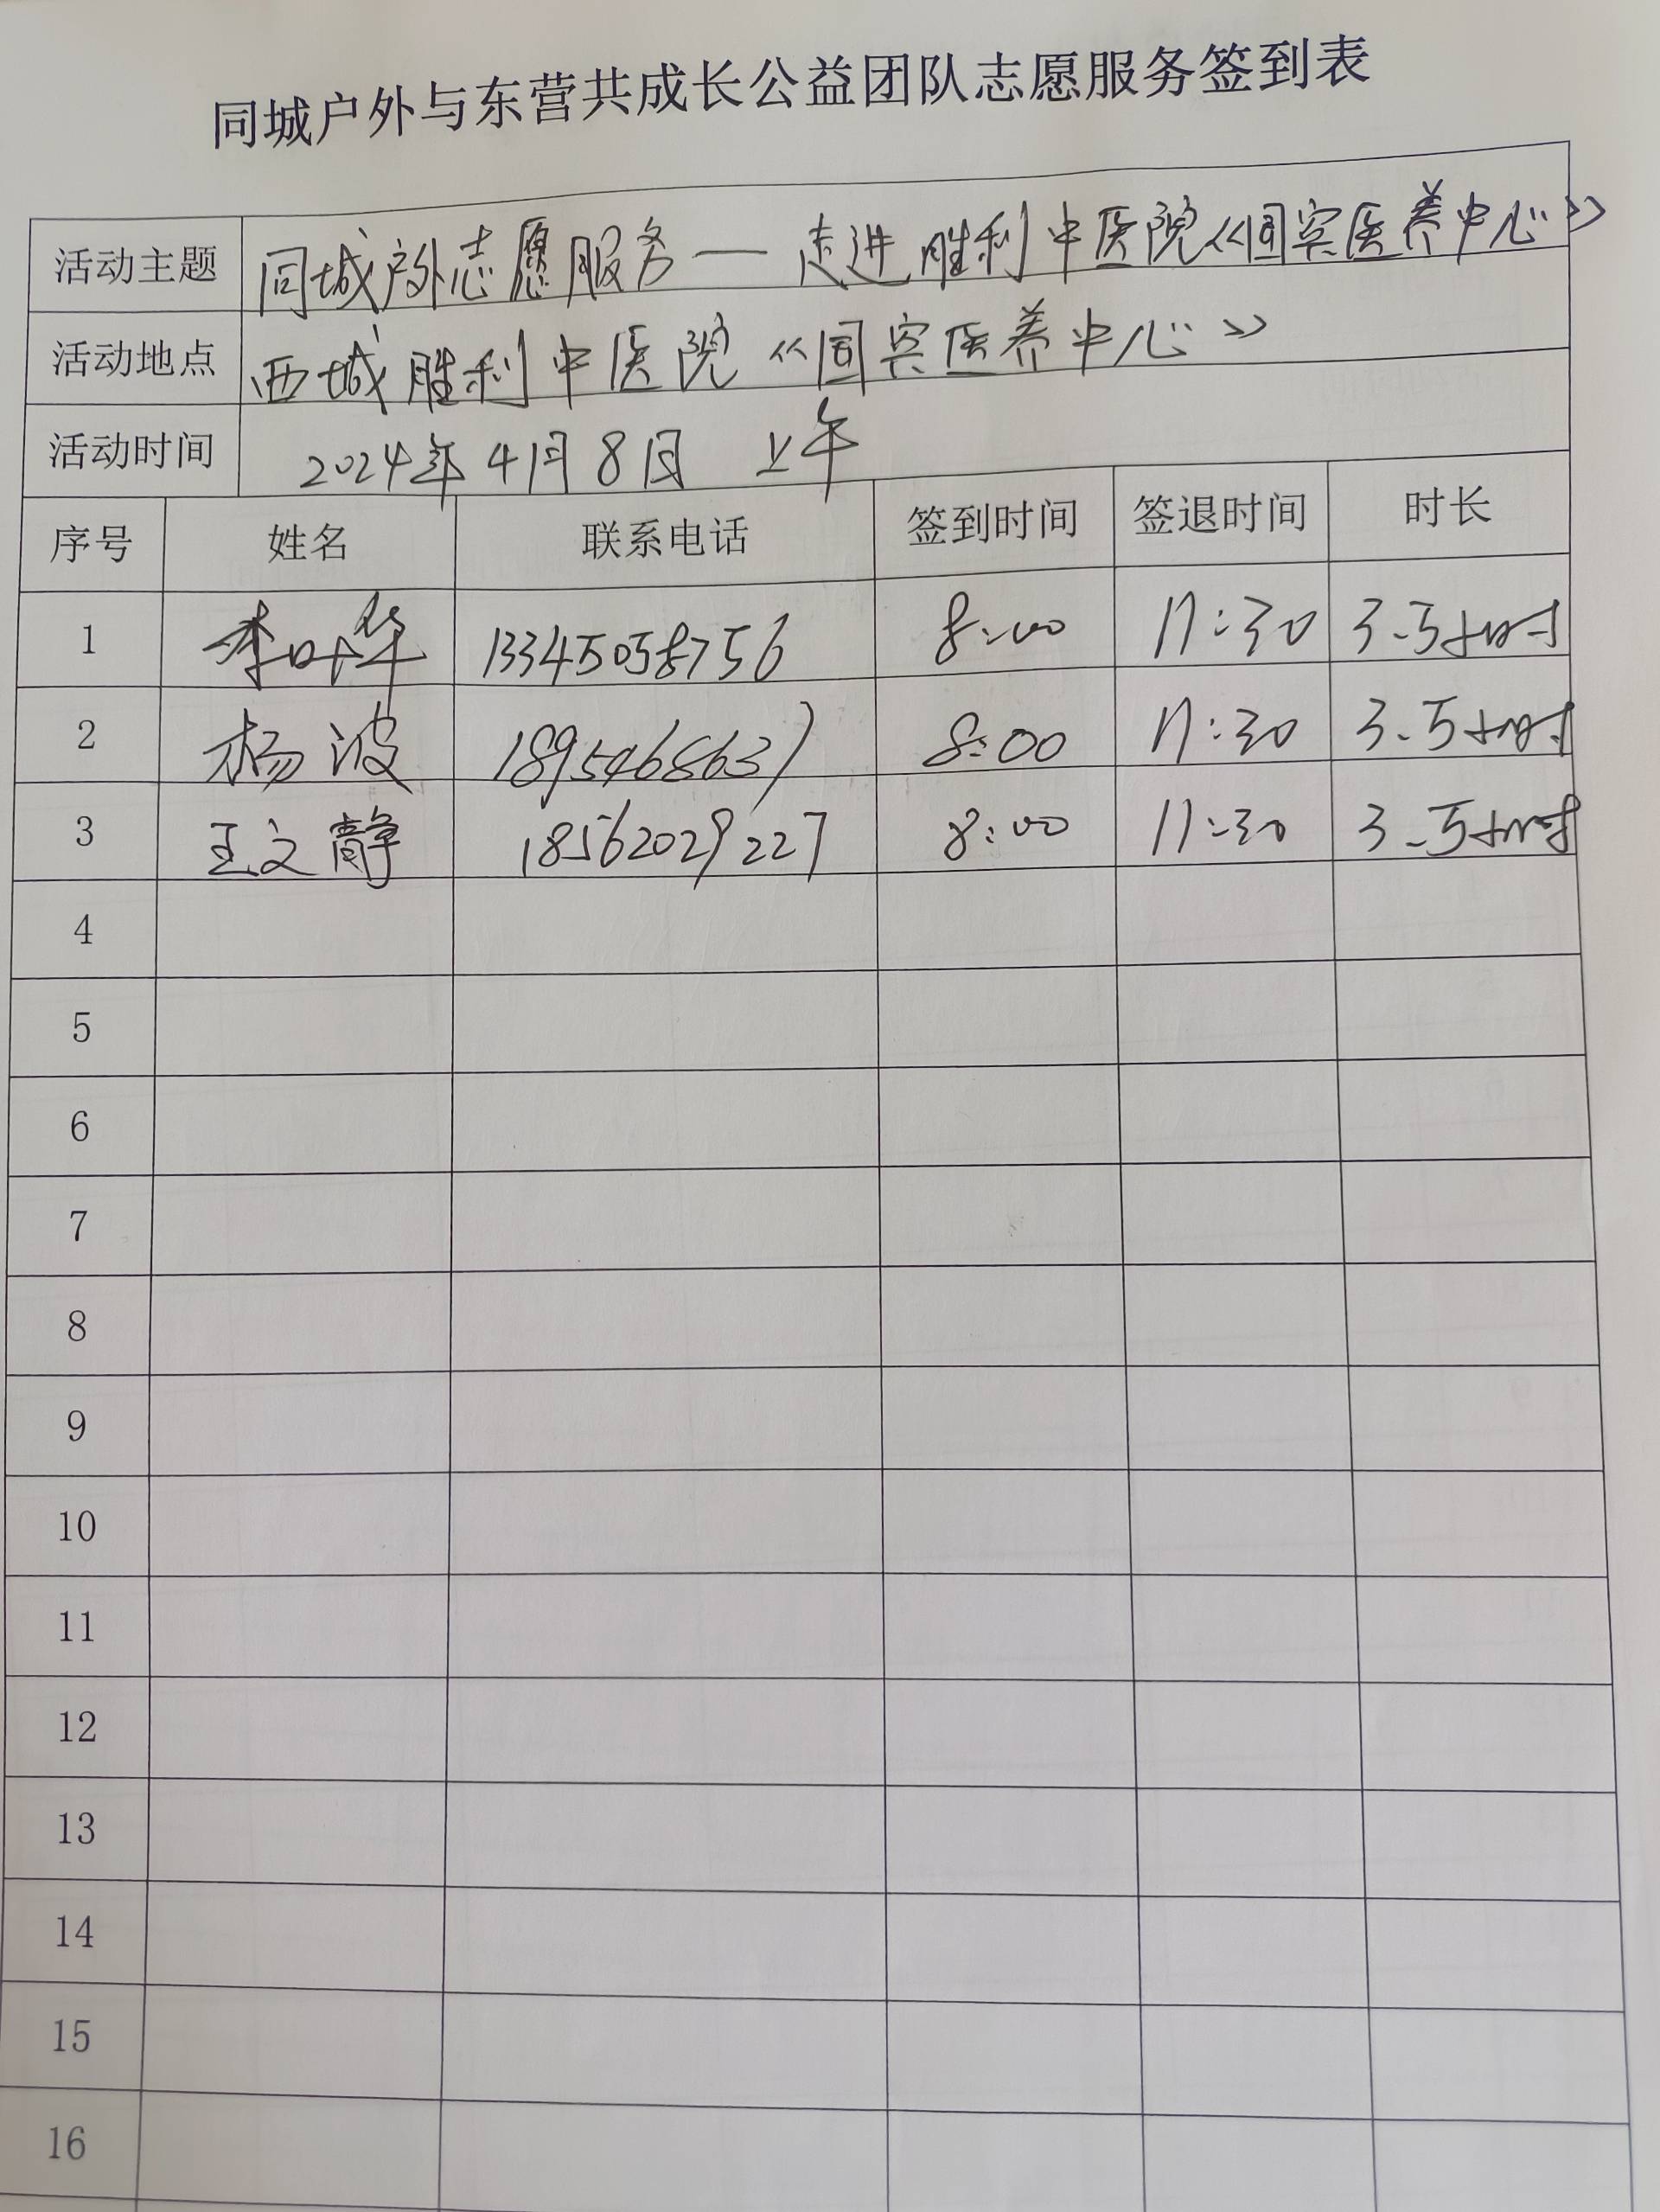 同城户外与东营共成长公益团队志愿服务签到表
活动主题 同城户外志愿服务—走进胜利中医院《同宾医养中心》
活动地点 西城胜利中医院《同宾医养中心》
活动时间 2024年4月8日 上午
序号 姓名 联系电话 签到时间 签退时间 时长
1 李叶华 13345058756 8:00 11:30 3.5小时
2 杨波 18954686637 8:00 11:30 3.5小时
3 王文静 18562029227 8:00 11:30 3.5小时
4
5
6
7
8
9
10
11
12
13
14
15
16